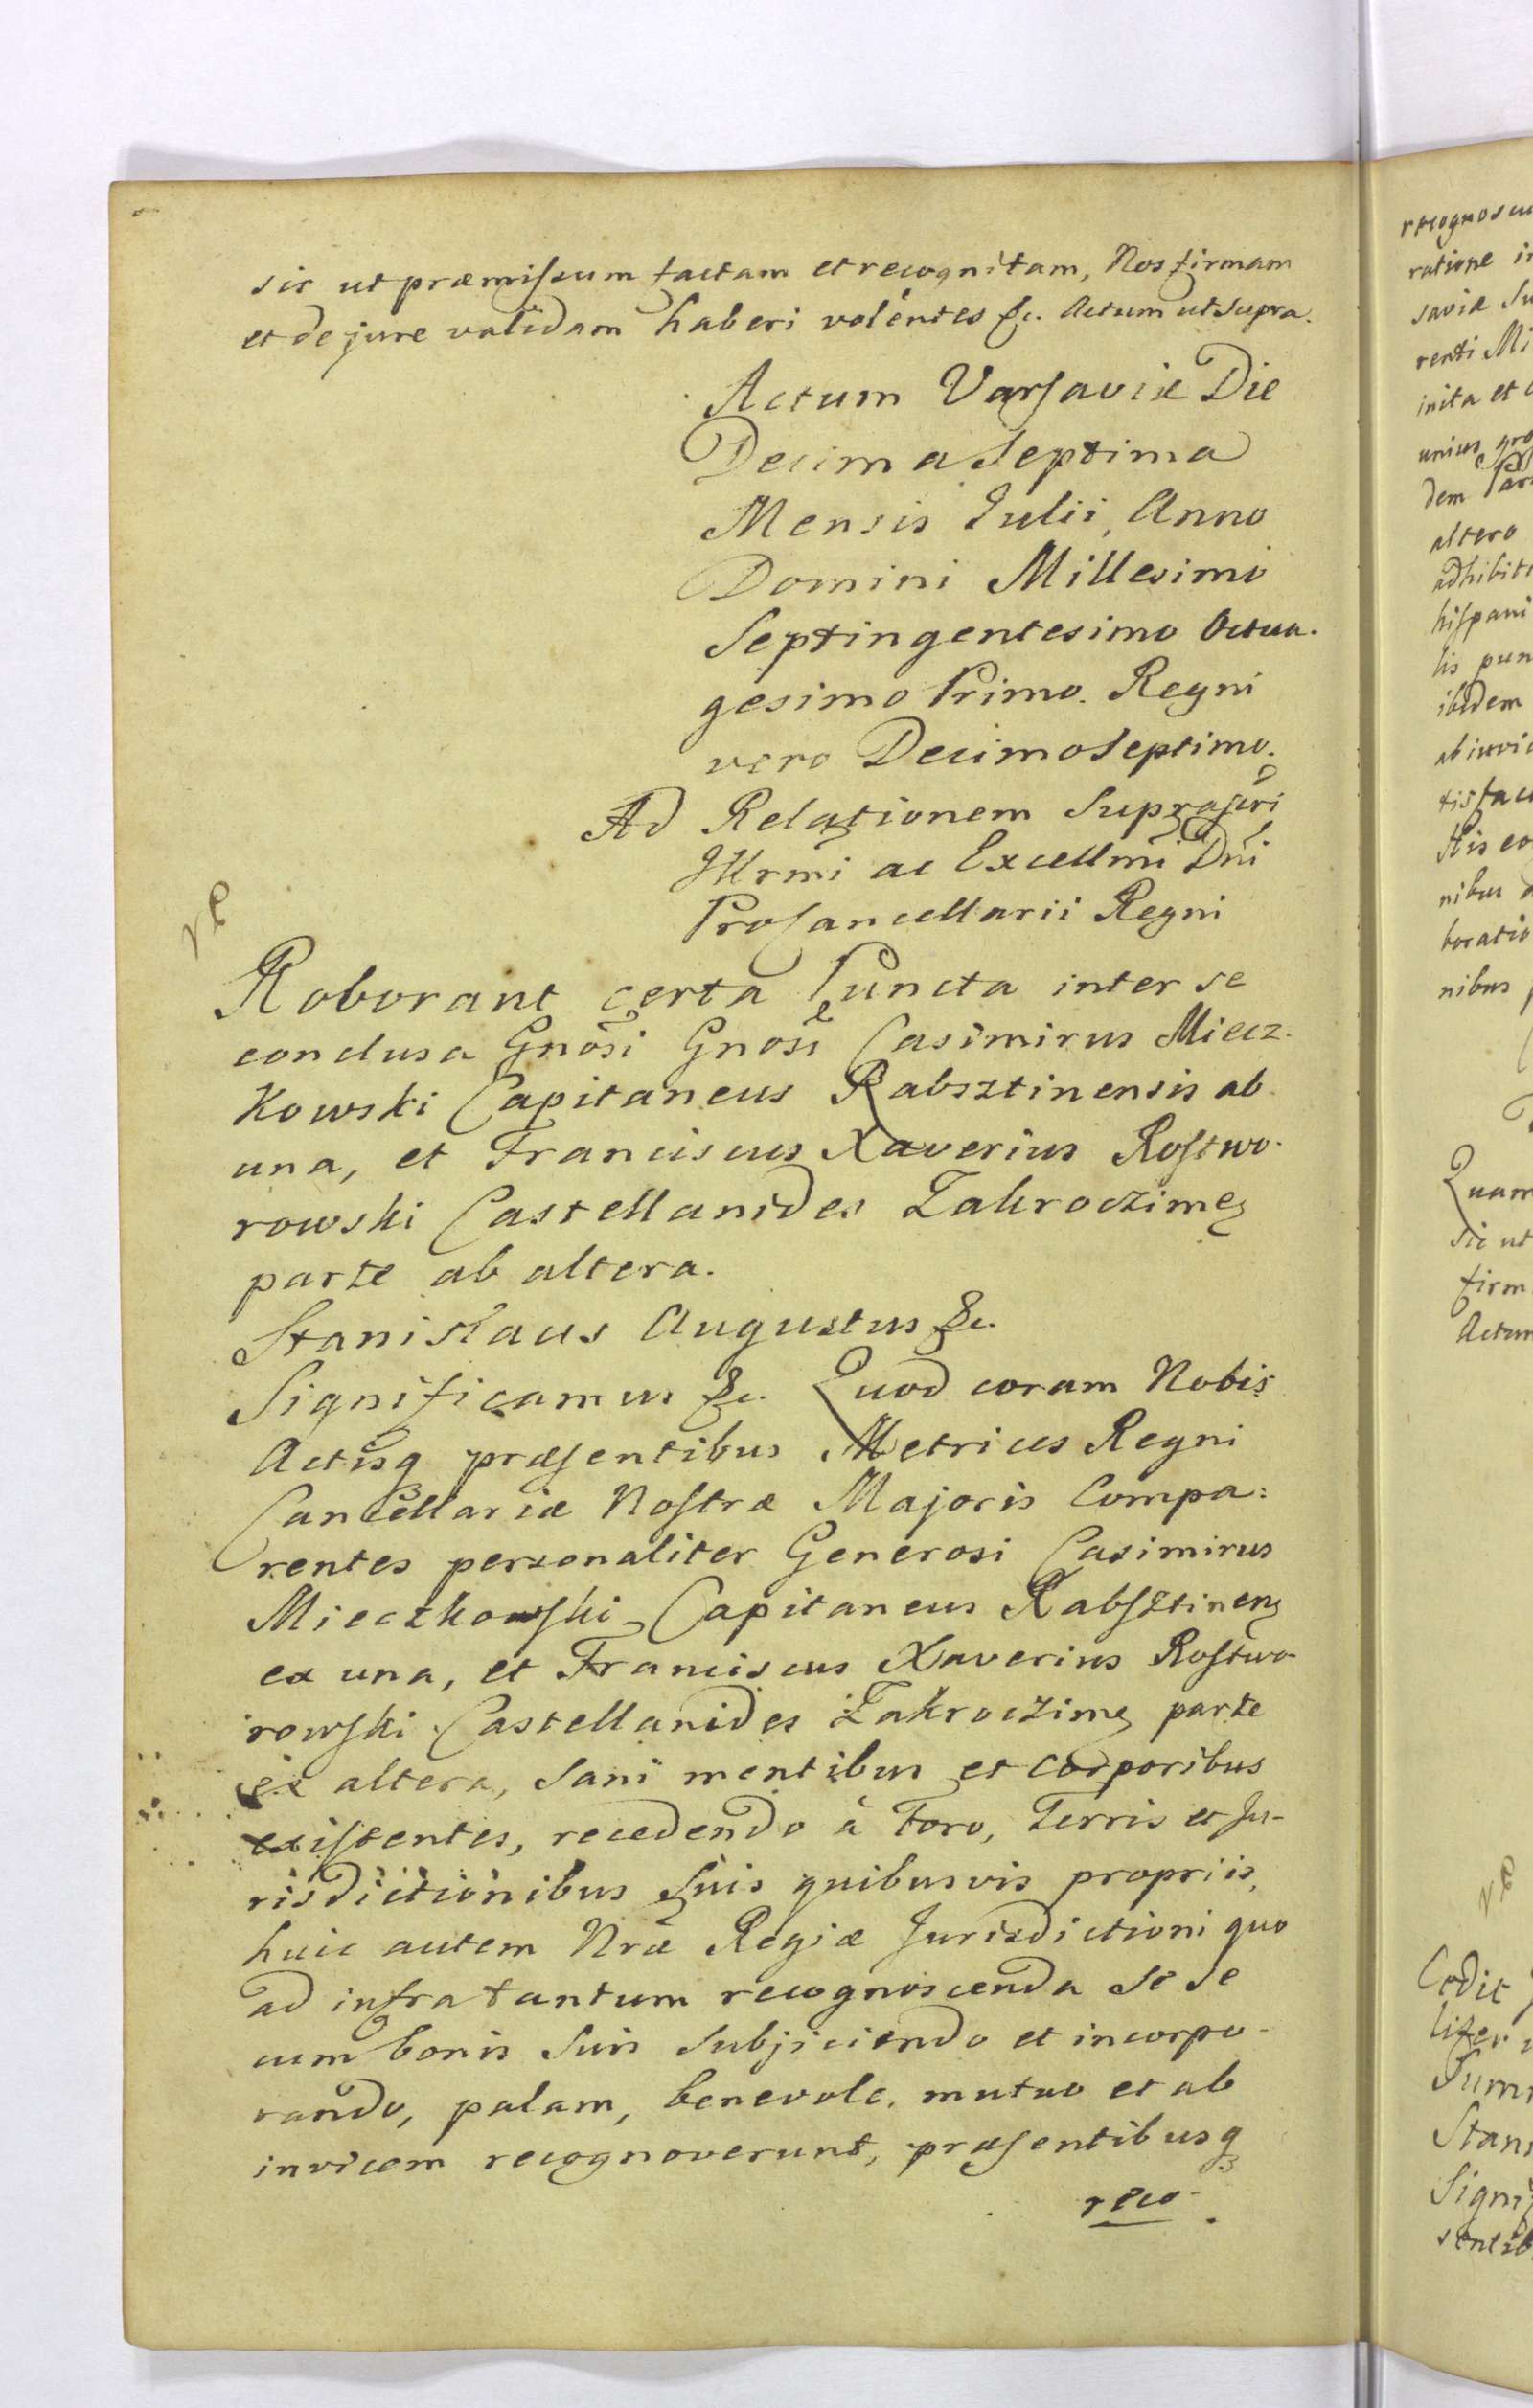 sic ut præmissum factam et recognitam, Nos firmam
et de jure validam haberi volentes &c. Actum ut Supra.
Actum Varsaviæ Die
Decima Septima
Mensis Julii, Anno
Domini Millesimo
Septingentesimo Octua-
gesimo Primo. Regni
vero Decimo Septimo.
Ad Relationem Suprascri
Illrmi ac Excellmi Dni
ProCancellarii Regni
Roborant certa Puncta inter se
conclusa Gnosi Gnosi Casimirus Miecz-
kowski Capitaneus Rabsztinensis ab
una, et Franciscus Xaverius Rostwo-
rowski Castellanides Zakroczimen
parte ab altera.
Stanislaus Augustus &c.
Significamus &c. Quod coram Nobis
Actisq præsentibus Metrices Regni
Cancellariæ Nostræ Majoris Compa:
rentes personaliter Generosi Casimirus
Mieczkowski Capitaneus Rabsztinen
ex una, et Franciscus Xaverius Rostwo
rowski Castellanides Zakroczimen parte
ex altera, Sani mentibus et corporibus
existentes, recedendo à Foro, Terris et Ju-
risdictionibus Suis quibusvis propriis,
huic autem Nræ Regiæ Jurisdictioni quo
ad infra tantum recognoscenda Se Se
cum bonis Suis Subjiciendo et incorpo-
rando, palam, benevole, mutuo et ab
invicem recognoverunt, præsentibusq
reco-
recognoscu
ratione in
saviæ Su
renti Mi
inita et
unius gro
dem Par
altero
adhibit
hispani
lis pun
ibidem
ab invic
tisfac
nibus
boratio
nibus
Quam
Sic ut
firm
Actum
Cedit
liter
Sum
Stani
Signi
sentib